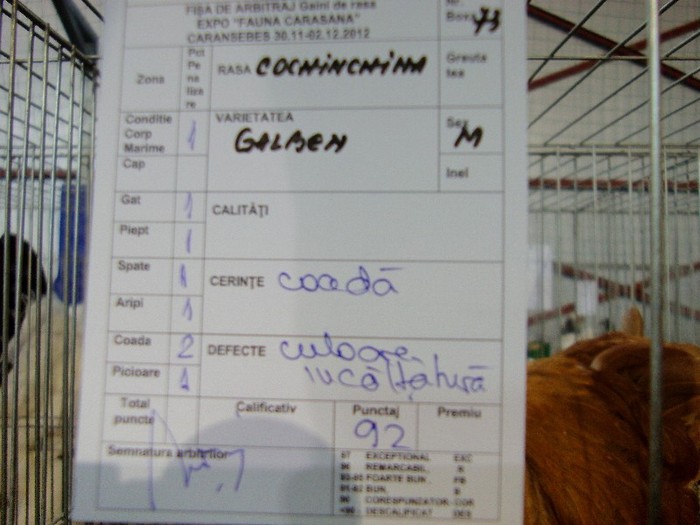 FIŞA DE ARBITRAJ Gaini de rasa
EXPO "FAUNA CARASANA"
CARANSEBES 30.11-02.12.2012
Nr.
Boxa 73
Zona
Pct
Pe
na
liza
re
RASA COCHINCHINA
Greuta
tea
Conditie
Corp
Marime
1
VARIETATEA
GALBEN
Sex
M
Cap
Inel
Gat 1
CALITĂŢI
Piept 1
Spate 1
CERINŢE coadă
Aripi 1
Coada 2
DEFECTE culoare,
încălţătură
Picioare 1
Total
puncte
Calificativ
Punctaj
92
Premiu
Semnatura arbitrilor
97 EXCEPTIONAL EXC
96 REMARCABIL, R
93-95 FOARTE BUN, FB
91-92 BUN, B
90 CORESPUNZATOR COR
<90 DESCALIFICAT DES